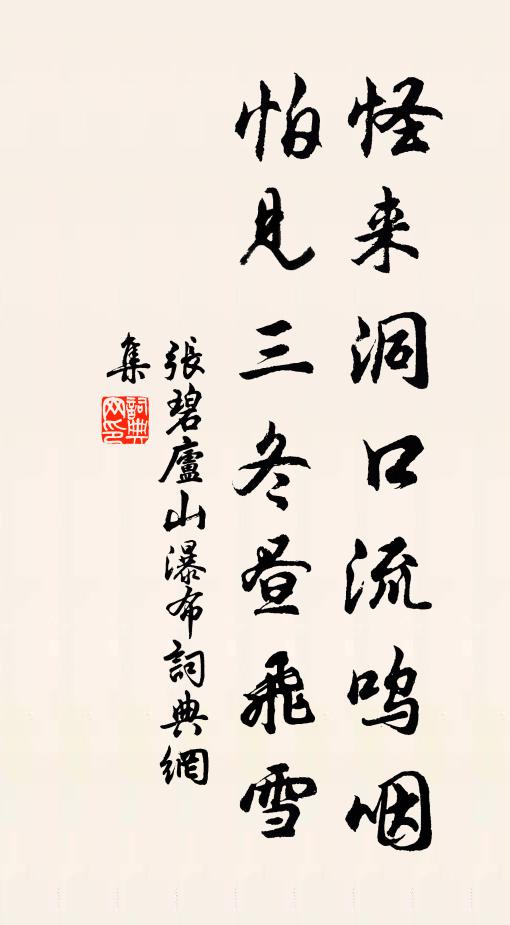 怪来洞口流呜咽
怕见三冬昼飞雪
張碧廬山瀑布詞典網
集
詞典
网印